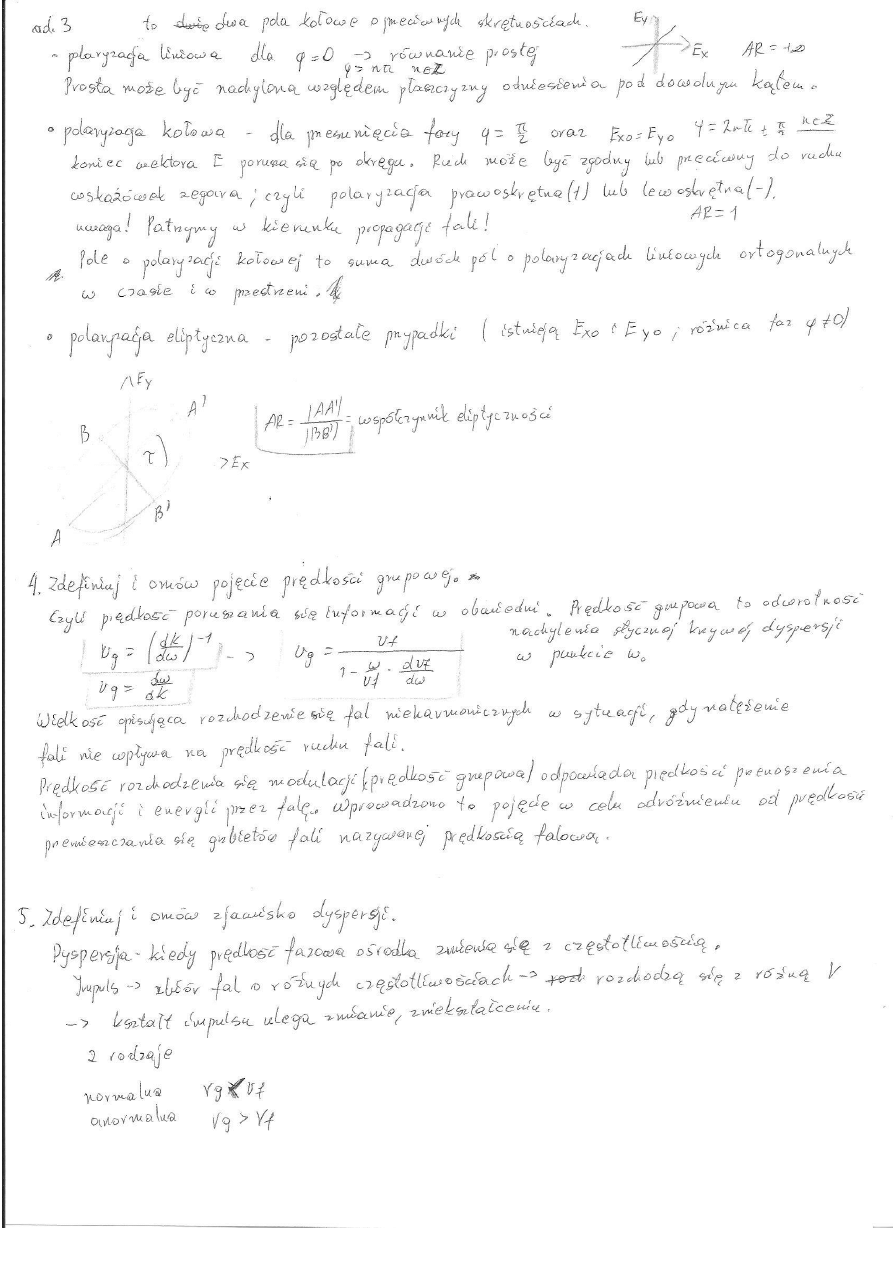 ad. 3 to dwa pola kołowe o przeciwnych skrętnościach.
• polaryzacja liniowa dla φ=0 -> równanie prostej
φ=nπ n∈Z
Ey
Ex AR = +∞
Prosta może być nachylona względem płaszczyzny odniesienia pod dowolnym kątem.
• polaryzacja kołowa - dla przesunięcia fazy φ = π/2 oraz Exo=Eyo φ=2nπ ± π/2 n∈Z
koniec wektora E porusza się po okręgu. Ruch może być zgodny lub przeciwny do ruchu
wskazówek zegara, czyli polaryzacja prawoskrętna(+) lub lewoskrętna(-).
AR=1
uwaga! Patrzymy w kierunku propagacji fali!
Pole o polaryzacji kołowej to suma dwóch pól o polaryzacjach liniowych ortogonalnych
w czasie i w przestrzeni.
• polaryzacja eliptyczna - pozostałe przypadki (istnieją Exo i Eyo, różnica faz φ≠0)
Ey
A'
B
AR = |AA'|/|BB'| = współczynnik eliptyczności
τ
>Ex
B'
A
4. Zdefiniuj i omów pojęcie prędkości grupowej.
Czyli prędkość poruszania się informacji w obwiedni. Prędkość grupowa to odwrotność
nachylenia stycznej krzywej dyspersji
w punkcie ω0
Vg = (dk/dω)^-1 --> Vg = Vf / (1 - ω/Vf · dVf/dω)
Vg = dω/dk
Wielkość opisująca rozchodzenie się fal nieharmonicznych w sytuacji, gdy natężenie
fali nie wpływa na prędkość ruchu fali.
Prędkość rozchodzenia się modulacji (prędkość grupowa) odpowiada prędkości przenoszenia
informacji i energii przez falę. Wprowadzono to pojęcie w celu odróżnieniu od prędkości
przemieszczania się grzbietów fali nazywanej prędkością falową.
5. Zdefiniuj i omów zjawisko dyspersji.
Dyspersja - kiedy prędkość fazowa ośrodka zmienia się z częstotliwością.
Impuls -> zbiór fal o różnych częstotliwościach -> rozchodzą się z różną V
-> kształt impulsu ulega zmianie, zniekształceniu.
2 rodzaje
normalna Vg < Vf
anormalna Vg > Vf